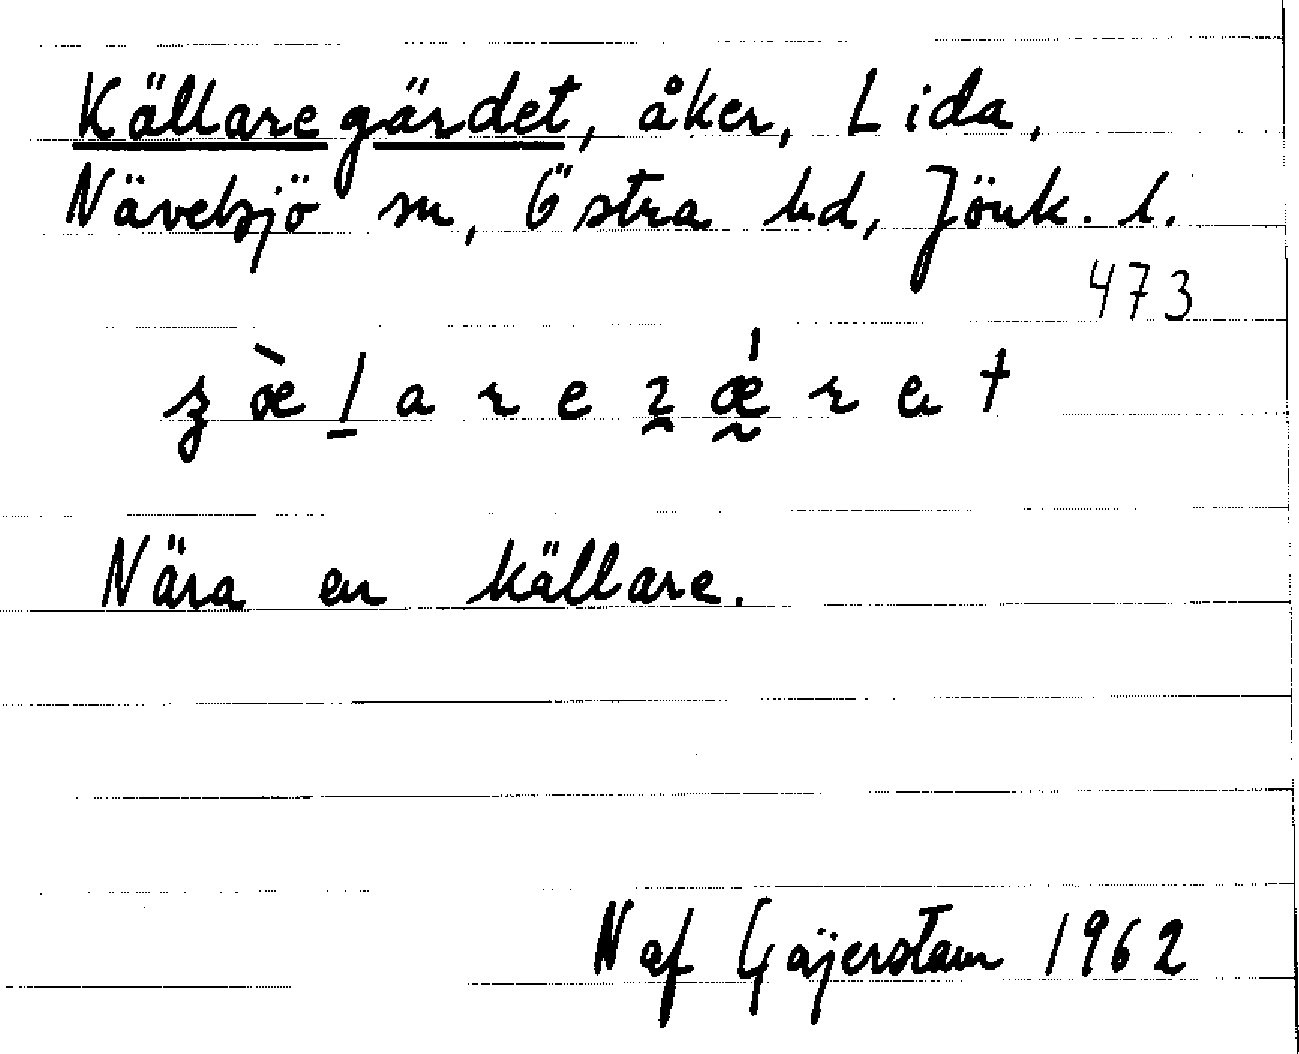 Källaregärdet, åker, Lida,
Nävelsjö sn, Östra hd, Jönk. l.
473
Nära en källare.
N af Gäjerstam 1962